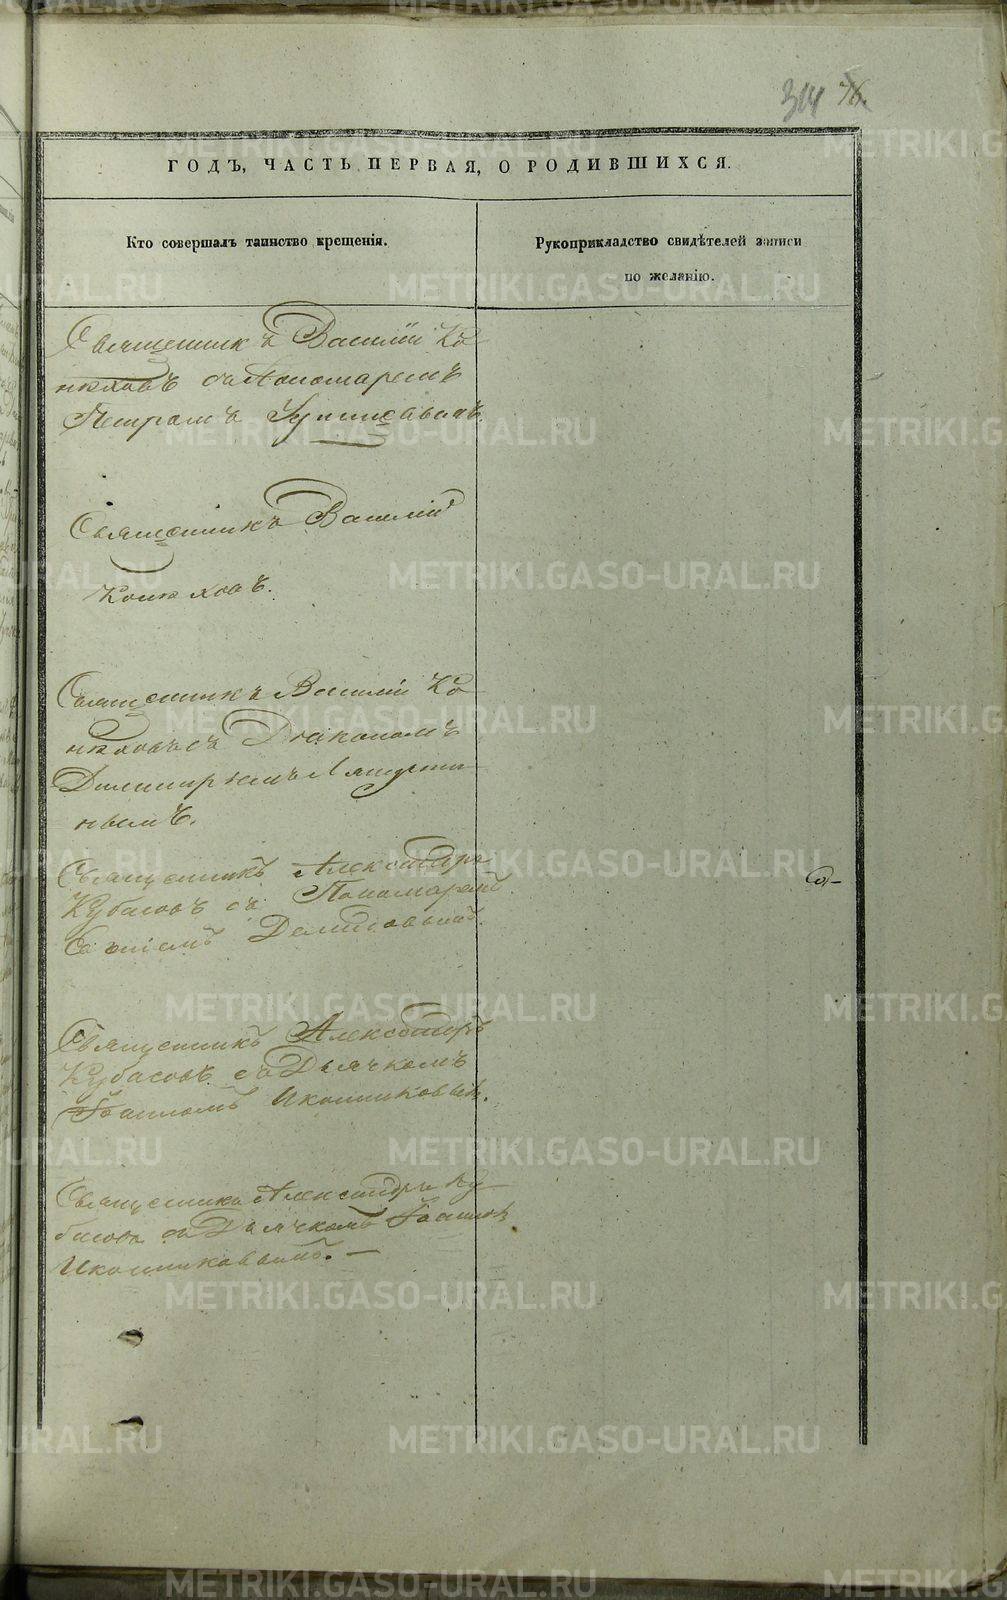 314 76.
ГОДЪ, ЧАСТЬ ПЕРВАЯ, О РОДИВШИХСЯ.
Кто совершалъ таинство крещенія.
Рукоприкладство свидѣтелей записи
по желанію.
Священникъ Василій Ко
нюховъ съ Пономаремъ
Петромъ
Священникъ Василій
Конюховъ.
Священникъ Василій Ко
нюховъ съ Діакономъ
Димитріемъ
нымъ.
Священникъ Александръ
Кубасовъ съ Пономаремъ
Демидовымъ.
Священникъ Александръ
Кубасовъ съ Дьячкомъ
Іоанномъ Иконниковымъ.
Священникъ Александръ Ку
басовъ съ Дьячкомъ Іоанном
Иконниковымъ. —
METRIKI.GASO-URAL.RU